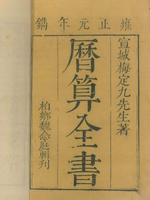 雍正元年鐫
宣城梅定九先生著
曆算全書
柏鄉魏念庭輯刊